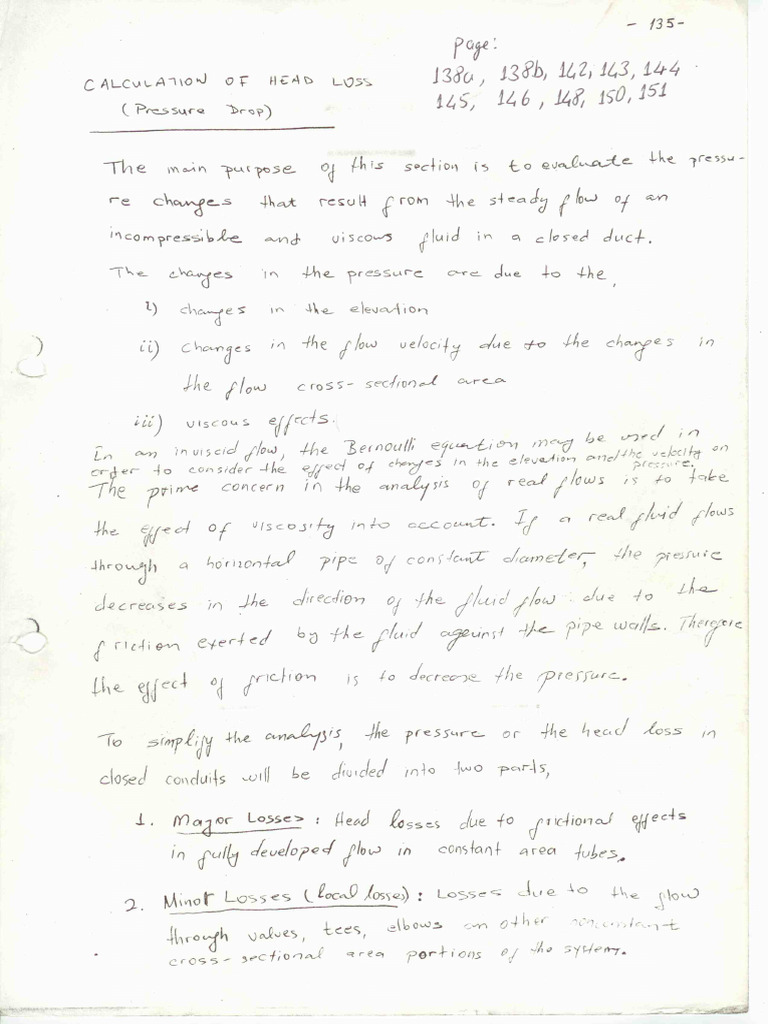 - 135 -
page:
138a, 138b, 142, 143, 144
145, 146, 148, 150, 151
CALCULATION OF HEAD LOSS
(Pressure Drop)
The main purpose of this section is to evaluate the pressu-
re changes that result from the steady flow of an
incompressible and viscous fluid in a closed duct.
The changes in the pressure are due to the,
i) changes in the elevation
ii) changes in the flow velocity due to the changes in
the flow cross-sectional area
iii) viscous effects.
In an inviscid flow, the Bernoulli equation may be used in
order to consider the effect of changes in the elevation and the velocity on
pressure.
The prime concern in the analysis of real flows is to take
the effect of viscosity into account. If a real fluid flows
through a horizontal pipe of constant diameter, the pressure
decreases in the direction of the fluid flow due to the
friction exerted by the fluid against the pipe walls. Therefore
the effect of friction is to decrease the pressure.
To simplify the analysis, the pressure or the head loss in
closed conduits will be divided into two parts,
1. Major Losses: Head losses due to frictional effects
in fully developed flow in constant area tubes.
2. Minor Losses (local losses): Losses due to the flow
through valves, tees, elbows on other nonconstant
cross-sectional area portions of the system.